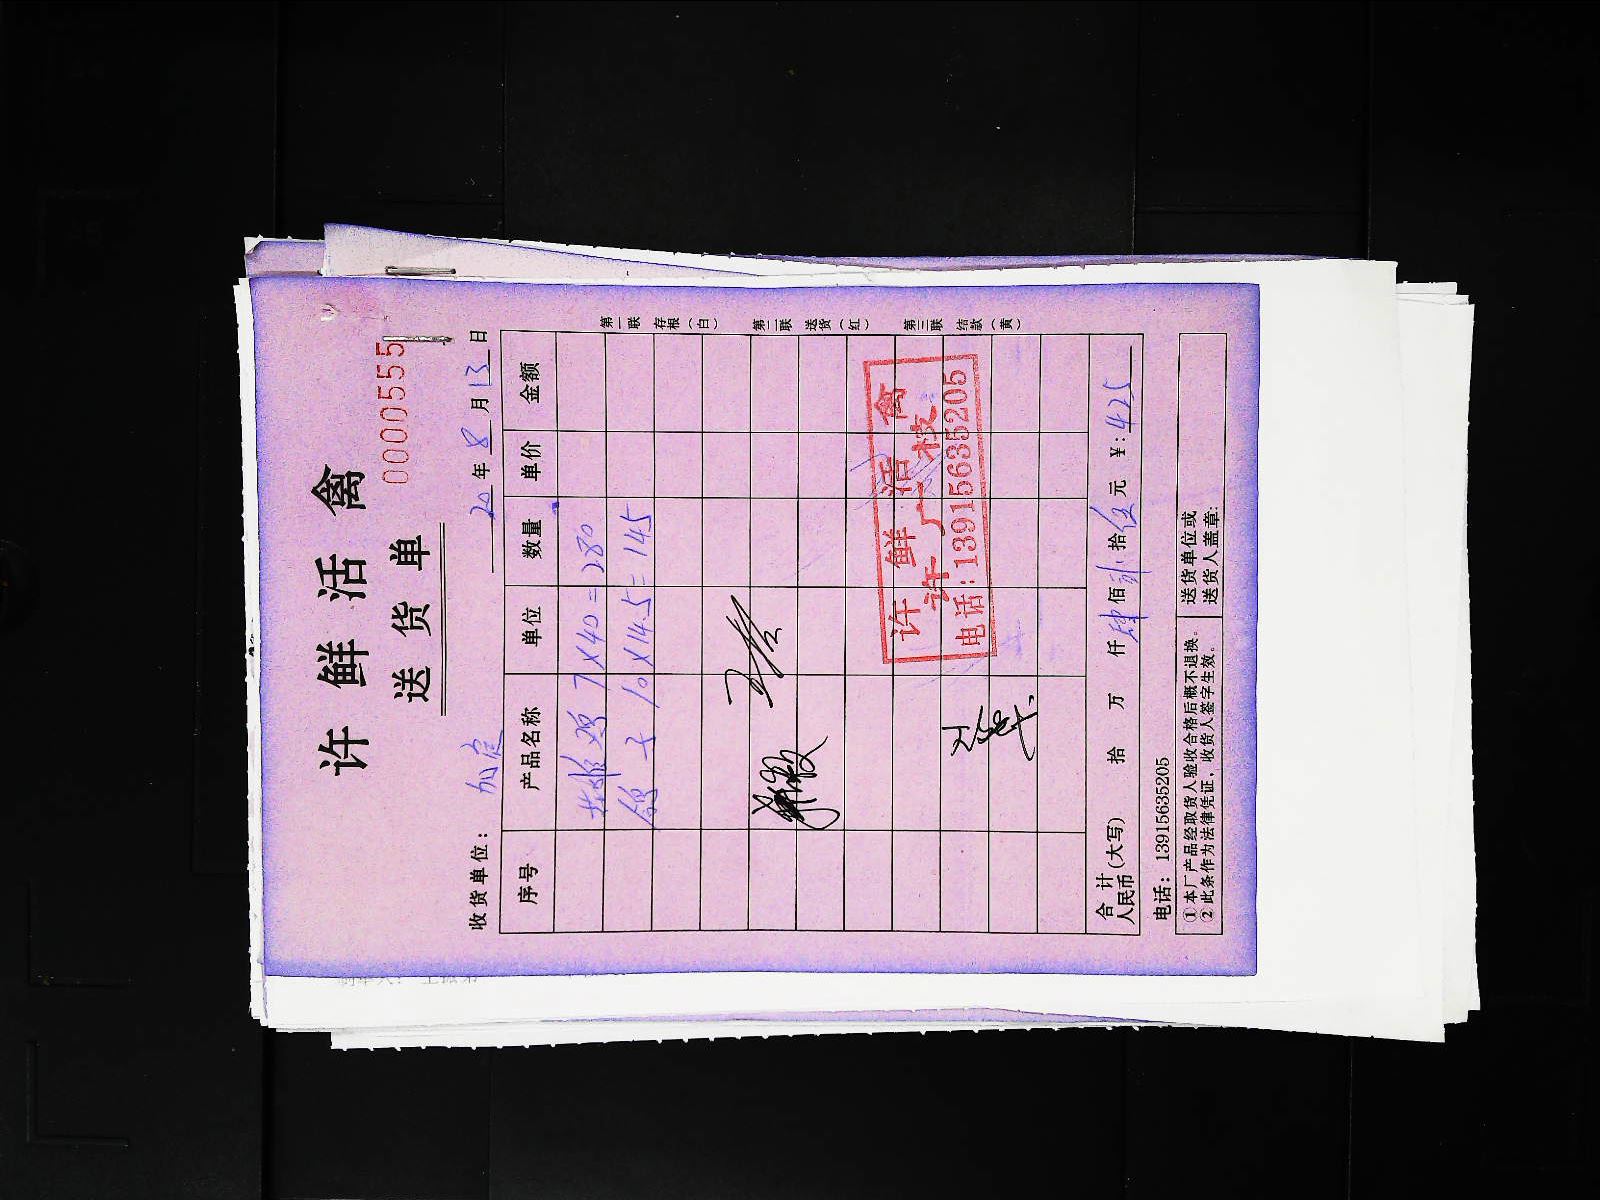 许鲜活禽
送货单
0000555
20年8月13日
收货单位：
序号 产品名称 单位 数量 单价 金额
鸡 7×40=280
鸽子 10×14.5=145
第一联 存根（白）
第二联 送货（红）
第三联 结款（黄）
许鲜活禽
许广枝
电话:13915635205
合计
人民币(大写) 拾 万 仟 肆佰贰拾伍元 ¥:425
电话：13915635205
①本厂产品经取货人验收合格后概不退换。
②此条作为法律凭证，收货人签字生效。
送货单位或
送货人盖章: